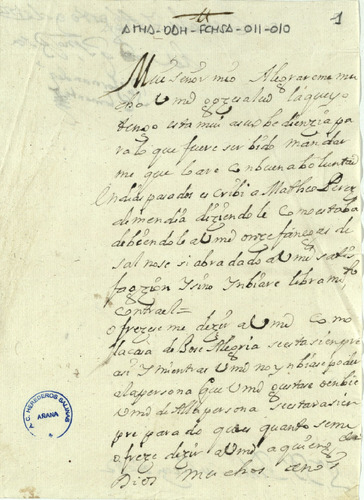 1
AMHA-DDH-FCHSA-011-010
Mui señor mio Alegrareme mu
cho Vmd goze salud la que yo
tengo esta mui a su obedienzia pa
ra lo que fuere serbido mandar
me que lo are con buena boluntad
En dias pasados escribi a Matheo Perez
de mendia diziendole Como estaba
debiendole a Vmd onze fanegas de
sal no se si abra dado a Vmd satis
fazion I sino Inbiare libramto
contra el =
ofrezeseme dezir a Vmd Como
la casa de Bore Alegria se esta sienpre
asi Y mientras Vmd no ynbiase poder
a la persona que Vmd gustare
Vmd persona se estara sien
pre para de que quanto seme
ofreze dezir a Vmd a quien
Dios muchos años
P.C. HEREDEROS SALINAS
AÑANA